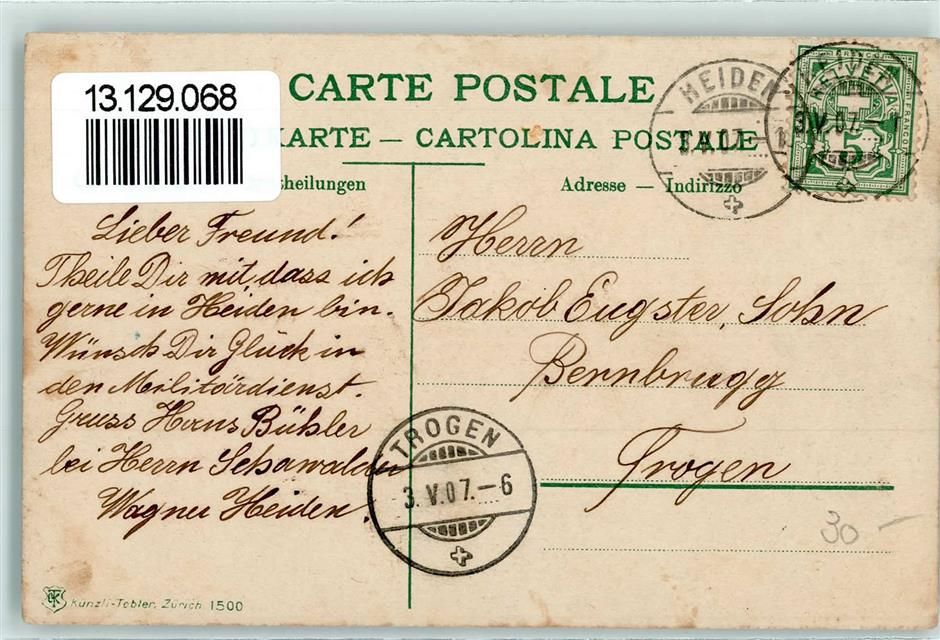 13.129.068
CARTE POSTALE
KARTE — CARTOLINA POSTALE
theilungen
Adresse — Indirizzo
HEIDEN
3.V.07.
HELVETIA
FRANCO
5
3.V.07.
Lieber Freund!
Theile Dir mit dass ich
gerne in Heiden bin.
Wünsch Dir Glück in
den Militärdienst.
Gruss Hans Bühler
bei Herrn
Wagner Heiden.
Herrn
Jakob Eugster, Sohn
Bernbrugg
Trogen
TROGEN
3.V.07.–6
30 –
Künzli-Tobler, Zürich 1500